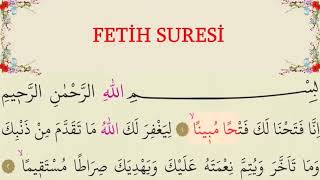 FETİH SURESİ
بِسْمِ اللهِ الرَّحْمٰنِ الرَّحِيمِ
اِنَّا فَتَحْنَا لَكَ فَتْحًا مُبِينًاۙ ﴿١﴾ لِيَغْفِرَ لَكَ اللهُ مَا تَقَدَّمَ مِنْ ذَنْبِكَ
وَمَا تَاَخَّرَ وَيُتِمَّ نِعْمَتَهُ عَلَيْكَ وَيَهْدِيَكَ صِرَاطًا مُسْتَقِيمًاۙ ﴿٢﴾